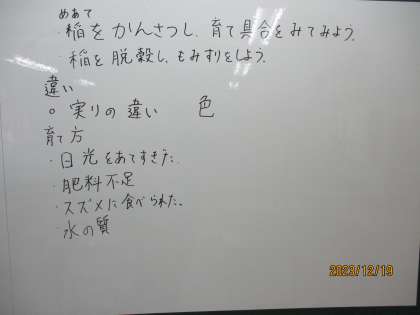 めあて
・稲をかんさつし、育て具合をみてみよう。
・稲を脱穀し、もみすりをしよう。
違い
○ 実りの違い 色
育て方
・日光をあてすぎた。
・肥料不足
・スズメに食べられた。
・水の質
2023/12/19